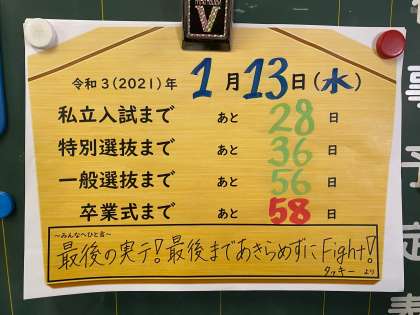 V
令和3(2021)年 1月13日(水)
私立入試まで あと 28 日
特別選抜まで あと 36 日
一般選抜まで あと 56 日
卒業式まで あと 58 日
～みんなへひと言～
最後の実テ!最後まであきらめずにFight!
タッキー より